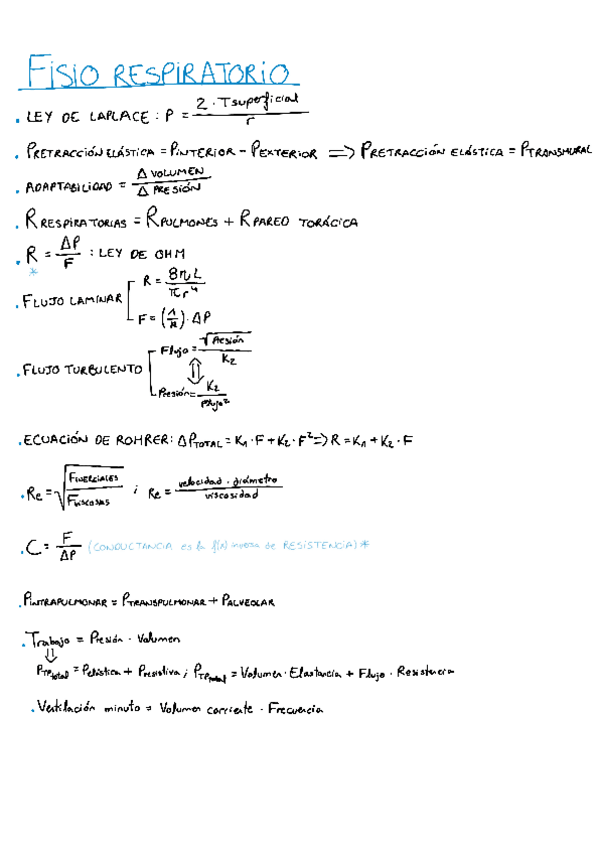 FISIO RESPIRATORIO
. LEY DE LAPLACE : P = 2 · Tsuperficial / r
. PRETRACCIÓN ELÁSTICA = PINTERIOR - PEXTERIOR => PRETRACCIÓN ELÁSTICA = PTRANSMURAL
. ADAPTABILIDAD = Δ VOLUMEN / Δ PRESIÓN
. R RESPIRATORIAS = RPULMONES + R PARED TORÁCICA
. R = ΔP / F : LEY DE OHM
*
. FLUJO LAMINAR
R = 8ηL / πr⁴
F = (1/R) · ΔP
. FLUJO TURBULENTO
Flujo = √Presión / K2
⇕
Presión = K2 / Flujo²
. ECUACIÓN DE ROHRER: ΔPTOTAL = K1 · F + K2 · F² => R = K1 + K2 · F
. Re = √FINERCIALES / FVISCOSAS ; Re = velocidad · diámetro / viscosidad
. C = F / ΔP (CONDUCTANCIA es la f(x) inversa de RESISTENCIA) *
. PINTRAPULMONAR = PTRANSPULMONAR + PALVEOLAR
. Trabajo = Presión · Volumen
⇓
PTPtotal = Pelástica + Presistiva ; PTPtotal = Volumen · Elastancia + Flujo · Resistencia
. Ventilación minuto = Volumen corriente · Frecuencia